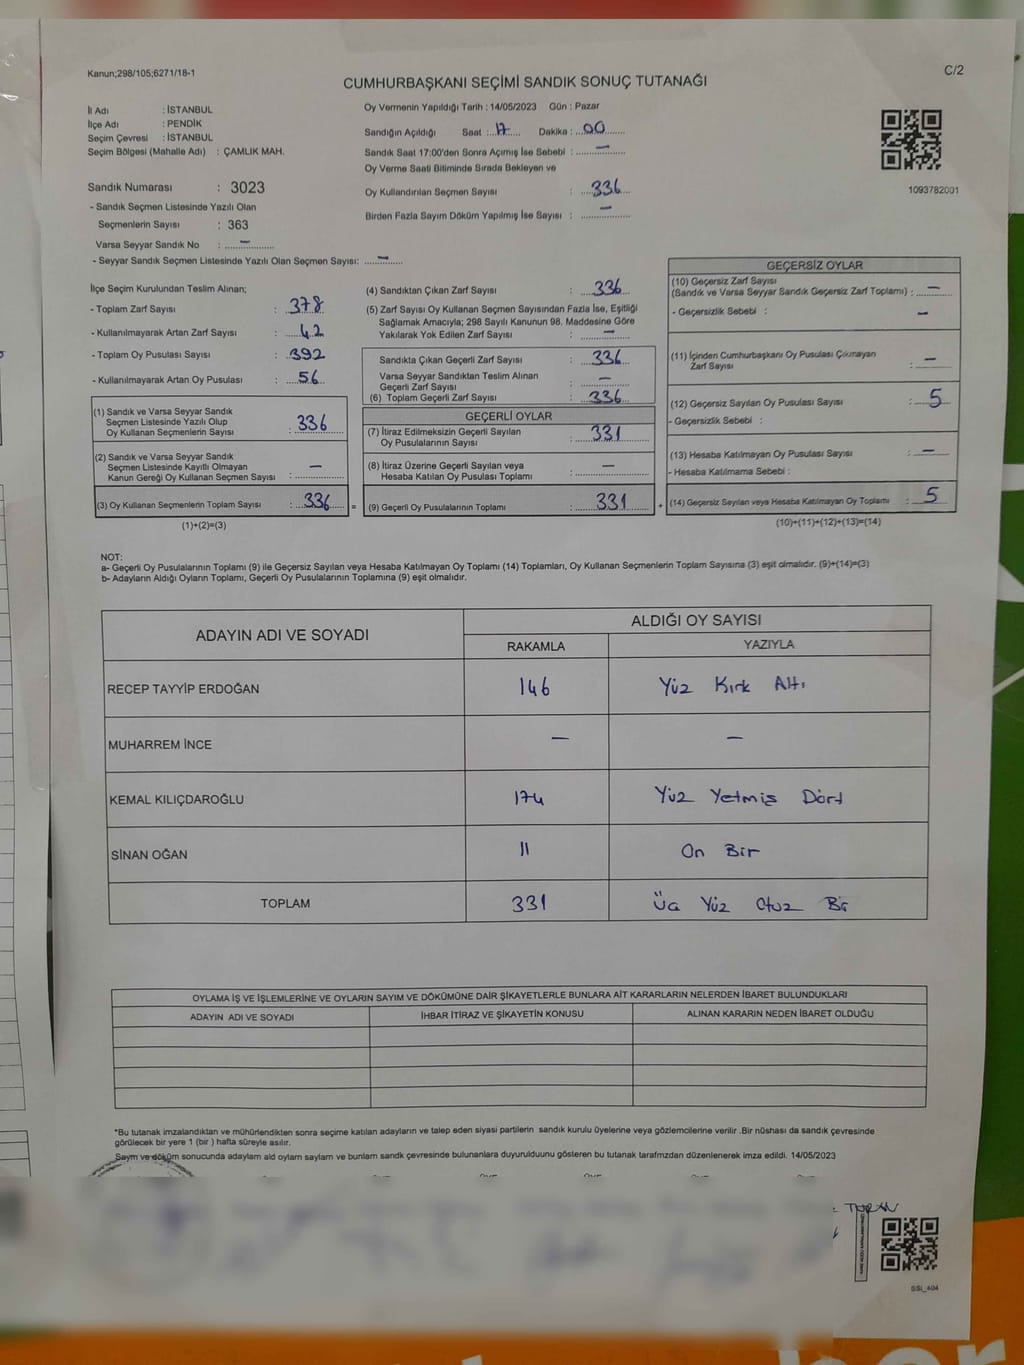 Kanun;298/105;6271/18-1
C/2
CUMHURBAŞKANI SEÇİMİ SANDIK SONUÇ TUTANAĞI
İl Adı : İSTANBUL
İlçe Adı : PENDİK
Seçim Çevresi : İSTANBUL
Seçim Bölgesi (Mahalle Adı) : ÇAMLIK MAH.
Sandık Numarası : 3023
- Sandık Seçmen Listesinde Yazılı Olan
Seçmenlerin Sayısı : 363
Varsa Seyyar Sandık No : –
- Seyyar Sandık Seçmen Listesinde Yazılı Olan Seçmen Sayısı: –
Oy Vermenin Yapıldığı Tarih : 14/05/2023 Gün : Pazar
Sandığın Açıldığı Saat : 17 Dakika : 00
Sandık Saat 17:00'den Sonra Açımış İse Sebebi : –
Oy Verme Saati Bitiminde Sırada Bekleyen ve
Oy Kullandırılan Seçmen Sayısı : 336
Birden Fazla Sayım Döküm Yapılmış İse Sayısı : –
1093782001
İlçe Seçim Kurulundan Teslim Alınan;
- Toplam Zarf Sayısı : 378
- Kullanılmayarak Artan Zarf Sayısı : 42
- Toplam Oy Pusulası Sayısı : 392
- Kullanılmayarak Artan Oy Pusulası : 56
(1) Sandık ve Varsa Seyyar Sandık
Seçmen Listesinde Yazılı Olup
Oy Kullanan Seçmenlerin Sayısı : 336
(2) Sandık ve Varsa Seyyar Sandık
Seçmen Listesinde Kayıtlı Olmayan
Kanun Gereği Oy Kullanan Seçmen Sayısı : –
(3) Oy Kullanan Seçmenlerin Toplam Sayısı : 336 =
(1)+(2)=(3)
(4) Sandıktan Çıkan Zarf Sayısı : 336
(5) Zarf Sayısı Oy Kullanan Seçmen Sayısından Fazla İse, Eşitliği
Sağlamak Amacıyla; 298 Sayılı Kanunun 98. Maddesine Göre
Yakılarak Yok Edilen Zarf Sayısı : –
Sandıkta Çıkan Geçerli Zarf Sayısı : 336
Varsa Seyyar Sandıktan Teslim Alınan
Geçerli Zarf Sayısı : –
(6) Toplam Geçerli Zarf Sayısı : 336
GEÇERLİ OYLAR
(7) İtiraz Edilmeksizin Geçerli Sayılan
Oy Pusulalarının Sayısı : 331
(8) İtiraz Üzerine Geçerli Sayılan veya
Hesaba Katılan Oy Pusulası Toplamı : –
(9) Geçerli Oy Pusulalarının Toplamı : 331 +
GEÇERSİZ OYLAR
(10) Geçersiz Zarf Sayısı
(Sandık ve Varsa Seyyar Sandık Geçersiz Zarf Toplamı) : –
- Geçersizlik Sebebi : –
(11) İçinden Cumhurbaşkanı Oy Pusulası Çıkmayan
Zarf Sayısı : –
(12) Geçersiz Sayılan Oy Pusulası Sayısı : 5
- Geçersizlik Sebebi :
(13) Hesaba Katılmayan Oy Pusulası Sayısı : –
- Hesaba Katılmama Sebebi :
(14) Geçersiz Sayılan veya Hesaba Katılmayan Oy Toplamı : 5
(10)+(11)+(12)+(13)=(14)
NOT:
a- Geçerli Oy Pusulalarının Toplamı (9) ile Geçersiz Sayılan veya Hesaba Katılmayan Oy Toplamı (14) Toplamları, Oy Kullanan Seçmenlerin Toplam Sayısına (3) eşit olmalıdır. (9)+(14)=(3)
b- Adayların Aldığı Oyların Toplamı, Geçerli Oy Pusulalarının Toplamına (9) eşit olmalıdır.
ADAYIN ADI VE SOYADI ALDIĞI OY SAYISI
RAKAMLA YAZIYLA
RECEP TAYYİP ERDOĞAN 146 Yüz Kırk Altı
MUHARREM İNCE – –
KEMAL KILIÇDAROĞLU 174 Yüz Yetmiş Dört
SİNAN OĞAN 11 On Bir
TOPLAM 331 Üç Yüz Otuz Bir
OYLAMA İŞ VE İŞLEMLERİNE VE OYLARIN SAYIM VE DÖKÜMÜNE DAİR ŞİKAYETLERLE BUNLARA AİT KARARLARIN NELERDEN İBARET BULUNDUKLARI
ADAYIN ADI VE SOYADI İHBAR İTİRAZ VE ŞİKAYETİN KONUSU ALINAN KARARIN NEDEN İBARET OLDUĞU
*Bu tutanak imzalandıktan ve mühürlendikten sonra seçime katılan adayların ve talep eden siyasi partilerin sandık kurulu üyelerine veya gözlemcilerine verilir .Bir nüshası da sandık çevresinde
görülecek bir yere 1 (bir ) hafta süreyle asılır.
Sayım ve döküm sonucunda adaylam ald oylam saylam ve bunlam sandk çevresinde bulunanlara duyurulduunu gösteren bu tutanak tarafmzdan düzenlenerek imza edildi. 14/05/2023
TURAN
SSİ_404